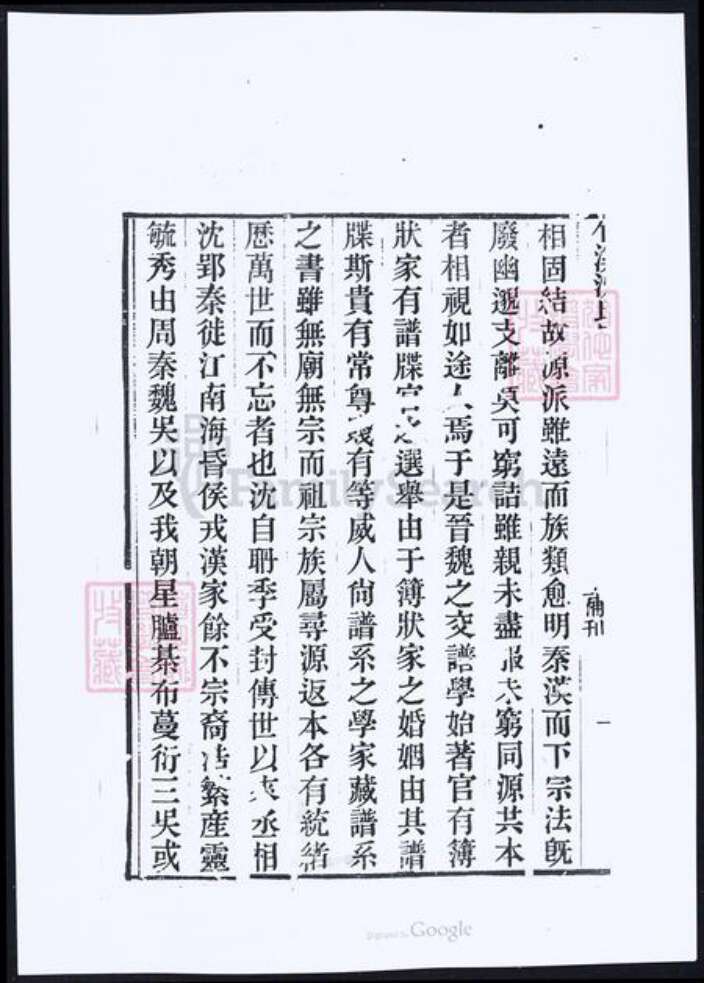 相固結故源派雖遠而族類愈明秦漢而下宗法旣
廢幽遐支離莫可窮詰雖親未盡服未窮同源共本
者相視如途人焉于是晉魏之交譜學始著官有簿
狀家有譜牒官之選舉由于簿狀家之婚姻由其譜
牒斯貴有常尊賤有等威人尙譜系之學家藏譜系
之書雖無廟無宗而祖宗族屬尋源返本各有統緒
歷萬世而不忘者也沈自聃季受封傳世以來丞相
沈郢秦徙江南海昏侯戎漢家餘不宗裔浩繁産靈
毓秀由周秦魏吳以及我朝星臚棊布蔓衍三吳或
一
收藏
收藏
FamilySearch
Digitized by Google